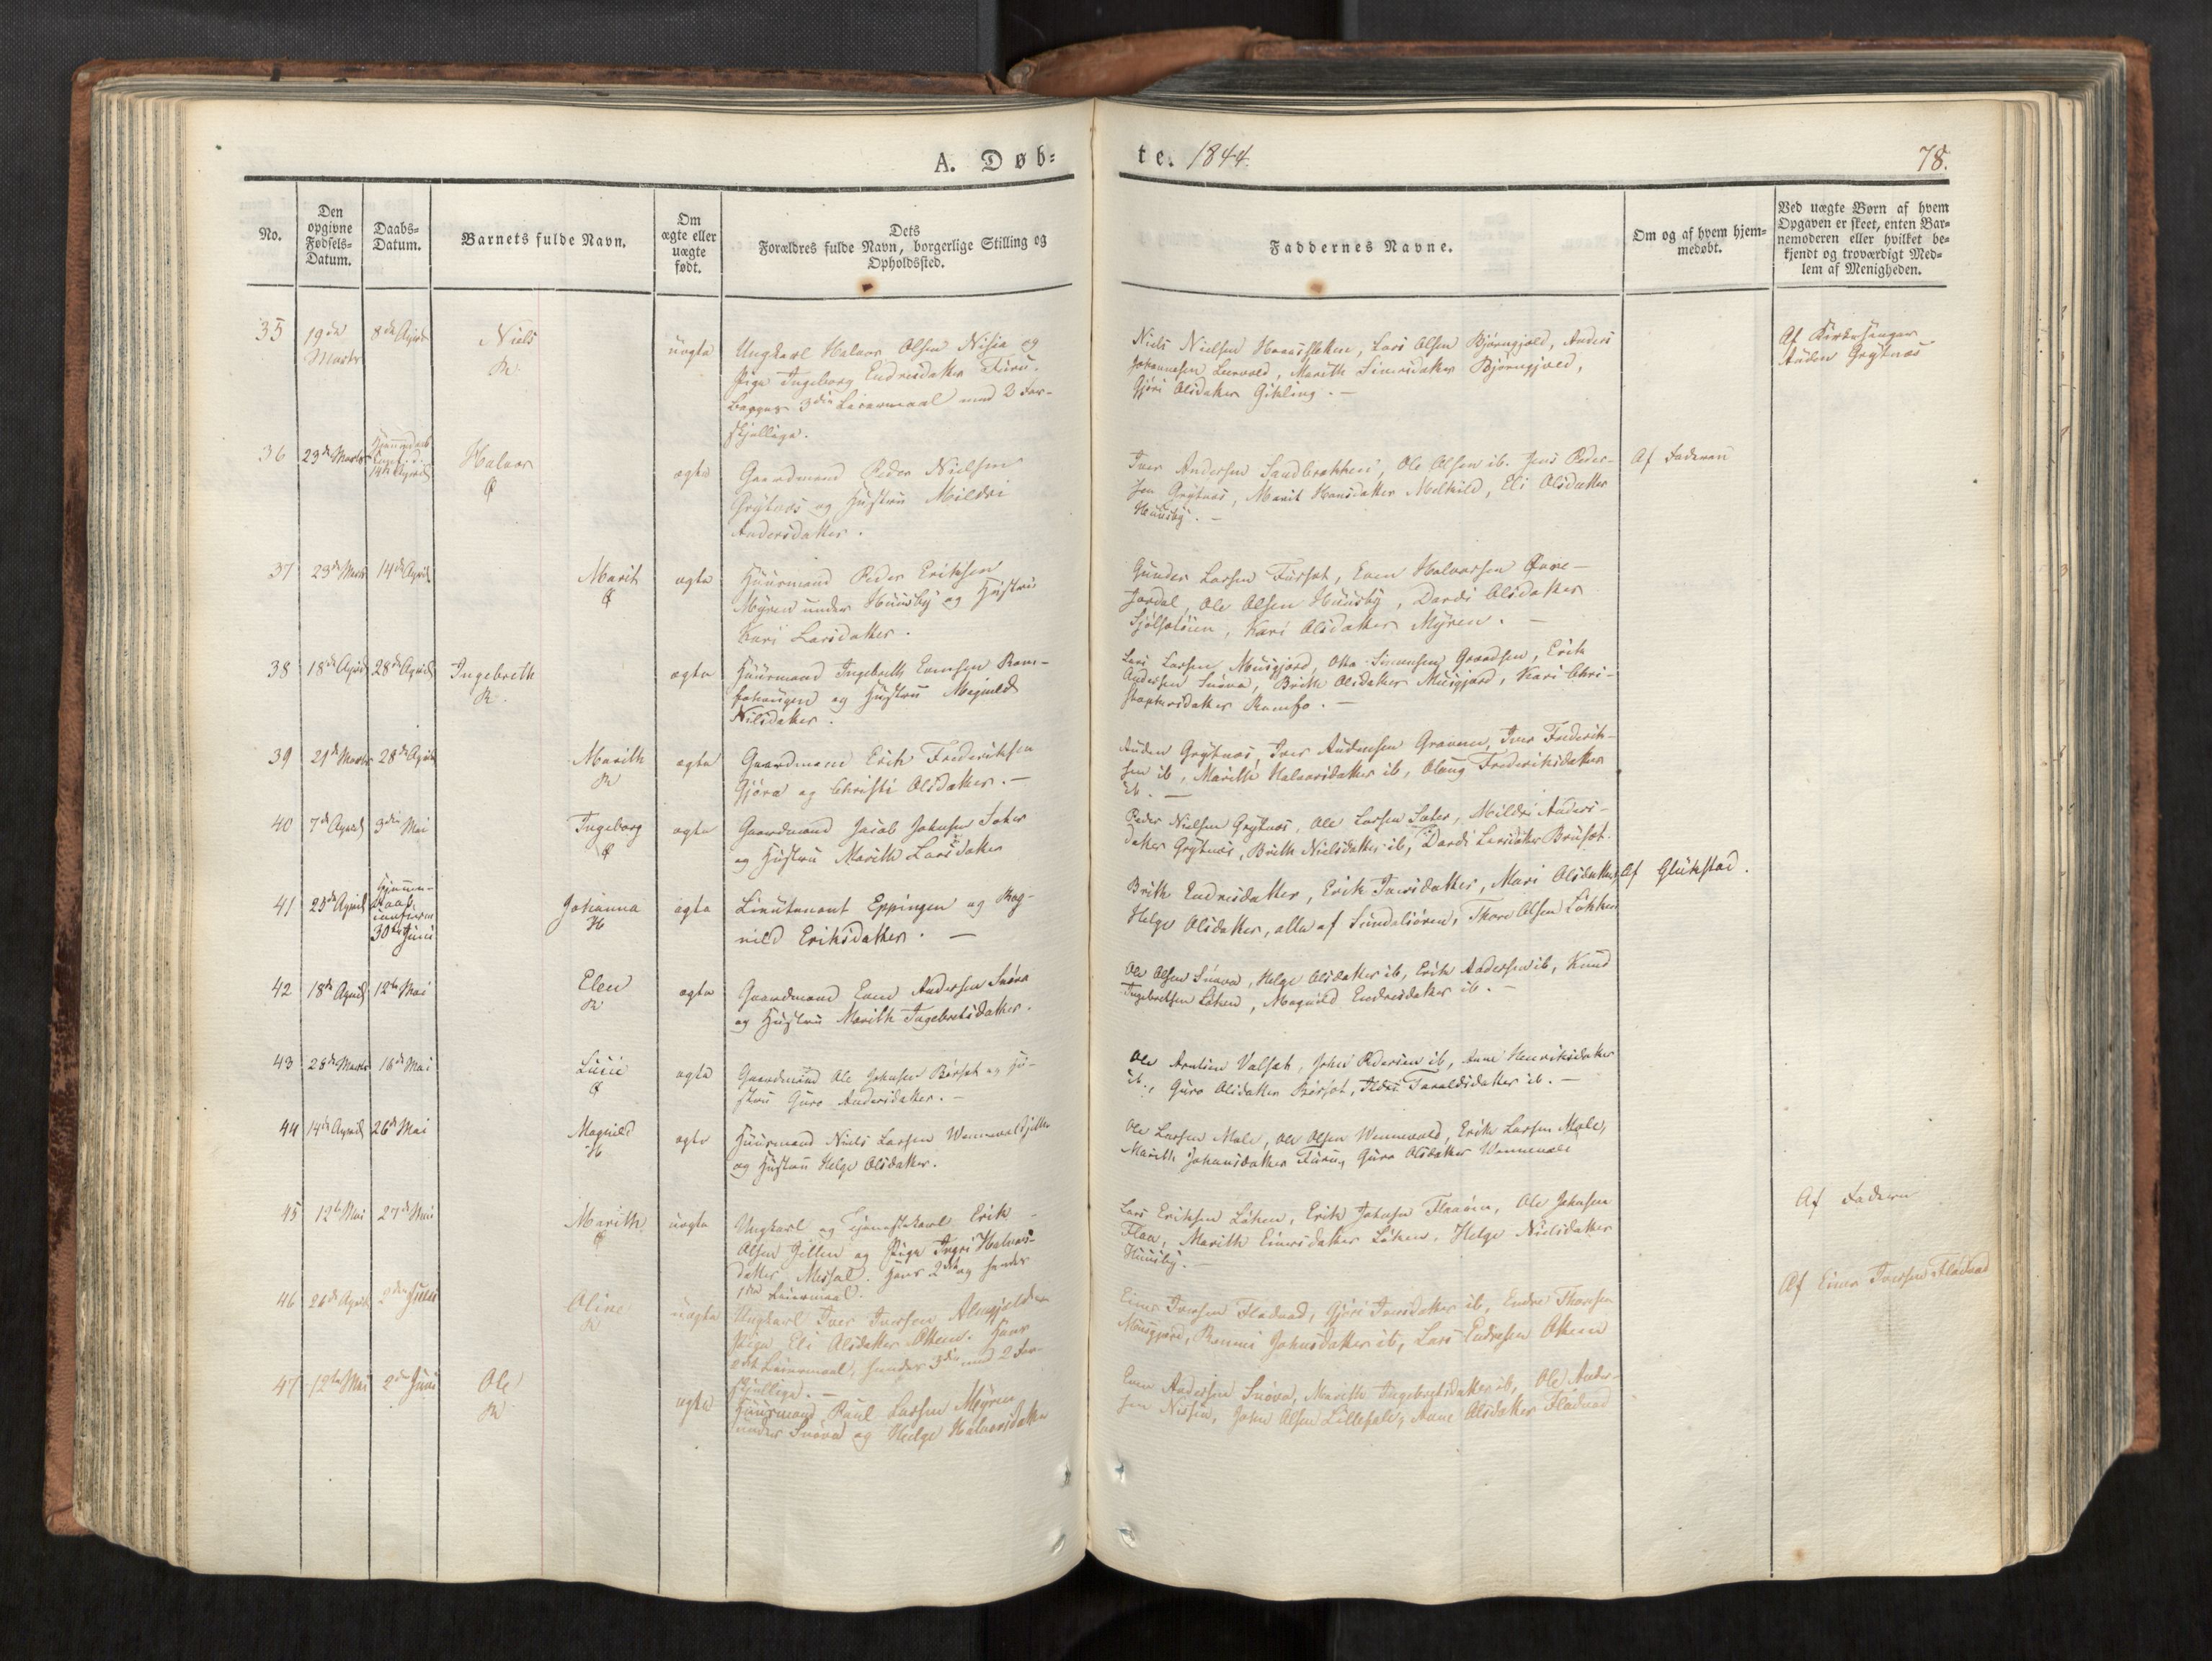 A. Døb=
te. 1844.
78.
No.
Den
opgivne
Fødsels=
Datum.
Daabs=
Datum.
Barnets fulde Navn.
Om
ægte eller
uægte
født.
Dets
Forældres fulde Navn, borgerlige Stilling og
Opholdssted.
Faddernes Navne.
Om og af hvem hjem=
medøbt.
Ved uægte Børn af hvem
Opgaven er skeet, enten Bar=
nemoderen eller hvilket be=
kjendt og troværdigt Med=
lem af Menigheden.
35
19de
Marts
8de April
Niels
R.
uægte
Ungkarl Halvor Olsen Nisja og
Pige Ingeborg Endresdatter Furu.
Begges 3die Leiermaal med 2 For-
skjellige.
Niels Nielsen Lars Olsen Bjørngjeld, Anders
Johannesen Marith Bjørngjeld,
Gjøri Olsdatter Gikling. —
Af Kirkesanger
Auden Grytnæs
36
23de Marts
14de April
Halvor
Ø
ægte
Gaardmand Peder Nielsen
Grytnæs og Hustru Mildri
Andersdatter.
Iver Andersen Sandbrækken, Ole Olsen ib. Jens Peder-
sen Grytnæs, Marit Hansdatter Melkild, Eli Olsdatter
Huusby. —
Af Faderen
37
23de Marts
14de April
Marit
Ø
ægte
Huusmand Peder Eriksen
Myren under Huusby og Hustru
Kari Larsdatter.
Gunder Larsen Furset, Even Halvorsen Øvre-
Jordal, Ole Olsen Huusby, Dordi Olsdatter
Kari Olsdatter Myren. —
38
18de April
28de April
Ingebreth
R.
ægte
Huusmand Ingebreth Evensen Rom-
og Hustru Magnild
Nilsdatter.
Lars Larsen Musgjerd, Otto Simensen Erik
Andersen Snøva, Brith Olsdatter Musgjerd, Kari Chri-
stophersdatter Romfo. —
39
21de Marts
28de April
Marith
R
ægte
Gaardmand Erik Frederiksen
Gjøra og Christi Olsdatter. —
Auden Grytnæs, Iver Audensen Iver Frederik-
sen ib, Marith Halvorsdatter ib, Olaug Frederiksdatter
ib. —
40
7de April
3die Mai
Ingeborg
Ø
ægte
Gaardmand Jacob Johnsen Sæter
og Hustru Marith Larsdatter
Peder Nielsen Grytnæs, Ole Larsen Sæter, Mildri Anders-
datter Grytnæs, Brith Nielsdatter ib, Dordi Larsdatter Bruset.
41
25de April
Hjemme-
daab
30te Juni
Johanna
H
ægte
Lieutenant Eppingen og Rag-
nild Eriksdatter. —
Brith Endresdatter, Erik Iversdatter, Mari Olsdatter,
Helge Olsdatter, alle af Sundalsøren, Thore Olsen Løkken
Af Glükstad.
42
18de April
12te Mai
Elen
R
ægte
Gaardmand Even Andersen Snøva
og Hustru Marith Ingebretsdatter.
Ole Olsen Snøva, Helge Olsdatter ib, Erik Andersen ib, Knud
Ingebretsen Løken, Magnild Endresdatter ib. —
43
28de Marts
16de Mai
Lucie
Ø
ægte
Gaardmand Ole Johnsen Børset og Hu-
stru Guro Andersdatter. —
Ole Arntsen Valset, John Pedersen ib, Anne Henriksdatter
ib., Guro Olsdatter Børset, Ildri Taraldsdatter ib. —
44
14de April
26de Mai
Magnild
H
ægte
Huusmand Niels Larsen
og Hustru Helge Olsdatter.
Ole Larsen Mæle, Ole Olsen Wennevold, Erik Larsen Mæle,
Marith Johansdatter Furu, Guro Olsdatter Wennevold
45
12te Mai
27de Mai
Marith
Ø
uægte
Ungkarl og Tjenestekarl Erik
Olsen Jillen og Pige Ingri Halvors-
datter Messel. Hans 2det og hendes
1ste Leiermaal.
Lars Eriksen Løken, Erik Johnsen Flaaøien, Ole Johnsen
Flaa, Marith Einersdatter Løken, Helge Nielsdatter
Huusby. —
Af Faderen
46
26de April
2den Juni
Oline
R
uægte
Ungkarl Iver Iversen og
Pige Eli Olsdatter Ottem. Hans
Leiermaal, hendes 3die med 2 For-
skjellige. —
Einer Iversen Fladvad, Gjøri Iversdatter ib, Endre Thoresen
Musgjerd, Johnsdatter ib, Lars Endresen Ottem
Af Einer Iversen Fladvad
47
12te Mai
2den Juni
Ole
R
ægte
Huusmand Poul Larsen Myren
under Snøva og Helge Halvorsdatter
Even Andersen Snøva, Marith Ingebretsdatter ib, Ole Ander-
sen Nisja, John Olsen Lillefale, Anne Olsdatter Fladvad